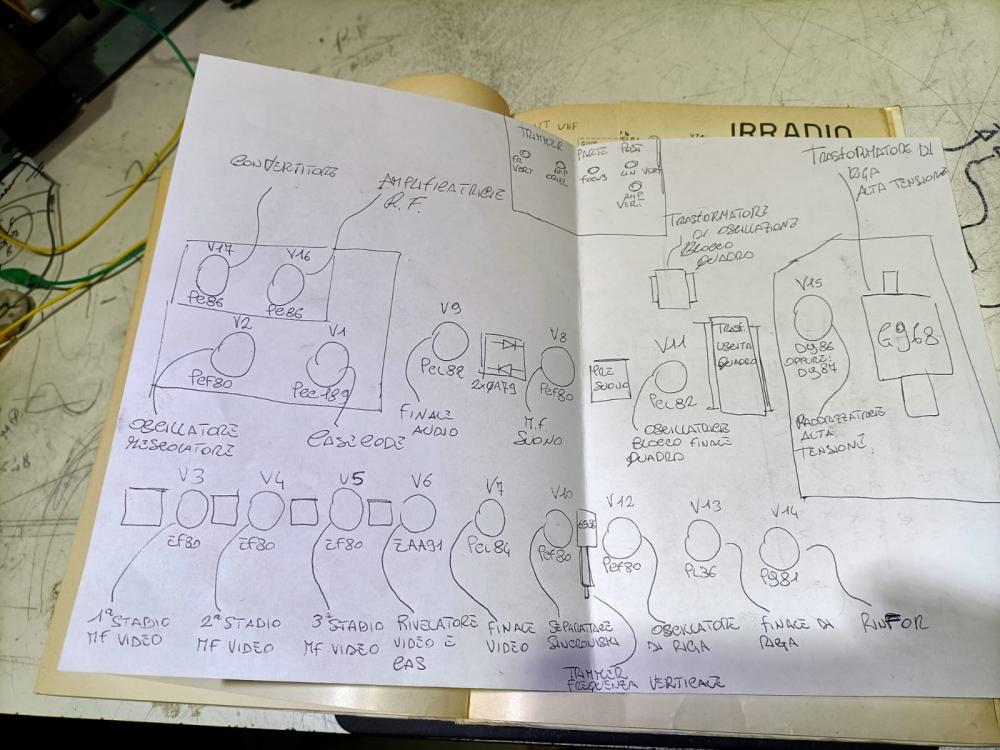 IRRADIO
VT VHF
TRIMMER
FR
VERT
AMP
ORIZ
PARTE POST
FOCUS
LIN VERT
AMP
VERT.
CONVERTITORE
AMPLIFICATRICE
R.F.
TRASFORMATORE DI
RIGA
ALTA TENSIONE
TRASFORMATORE
DI OSCILLAZIONE
BLOCCO
QUADRO
V17
PC86
V16
PC86
V2
PCF80
V1
PCC189
V9
PCL82
2xOA79
V8
PCF80
MF
SUONO
V11
PCL82
TRASF.
USCITA
QUADRO
V15
DY86
OPPURE:
DY87
G968
OSCILLATORE
MESCOLATORE
CASCODE
FINALE
AUDIO
M.F.
SUONO
OSCILLATRICE
BLOCCO FINALE
QUADRO
RADDRIZZATRICE
ALTA
TENSIONE
V3
EF80
V4
EF80
V5
EF80
V6
EAA91
V7
PCL84
V10
PCF80
V12
PCF80
V13
PL36
V14
PY81
1° STADIO
MF VIDEO
2° STADIO
MF VIDEO
3° STADIO
MF VIDEO
RIVELATORE
VIDEO E
CAS
FINALE
VIDEO
SEPARATORE
SINCRONISMI
TRIMMER
FREQUENZA VERTICALE
OSCILLATORE
DI RIGA
FINALE DI
RIGA
RINFOR